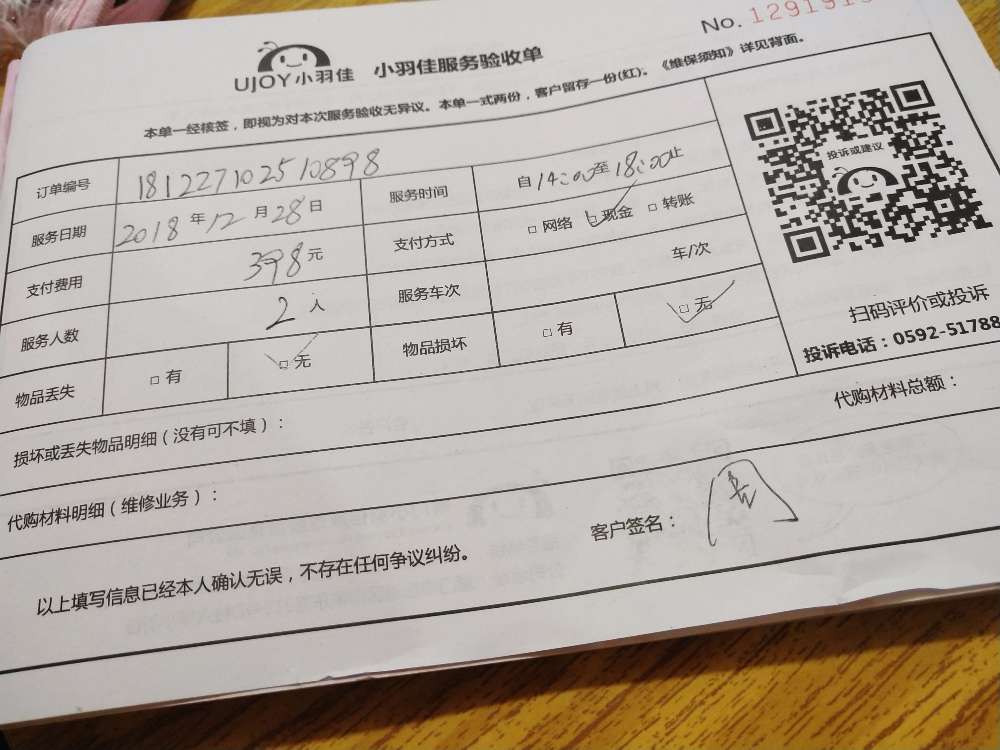 No. 129191
UJOY小羽佳 小羽佳服务验收单
本单一经核签，即视为对本次服务验收无异议。本单一式两份，客户留存一份(红)。《维保须知》详见背面。
订单编号 181227102510898
服务时间 自 14:00 至 18:00 止
服务日期 2018 年 12 月 28 日
支付方式 □ 网络 □ 现金 □ 转账
支付费用 398 元
服务车次 车/次
服务人数 2 人
物品损坏 □ 有 □ 无
物品丢失 □ 有 □ 无
投诉或建议
扫码评价或投诉
投诉电话：0592-51788
损坏或丢失物品明细（没有可不填）：
代购材料总额：
代购材料明细（维修业务）：
客户签名：
以上填写信息已经本人确认无误，不存在任何争议纠纷。